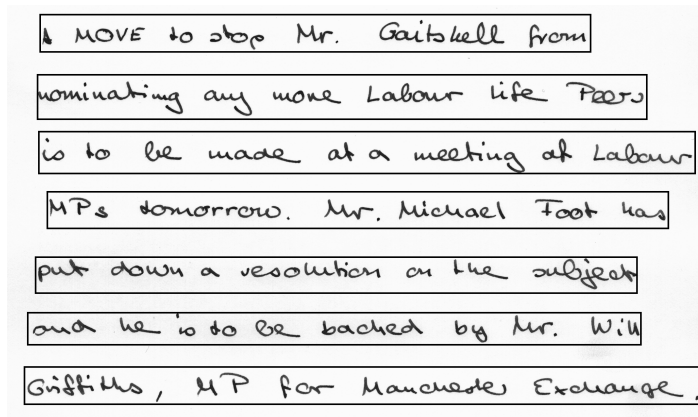 A MOVE to stop Mr. Gaitskell from
nominating any more Labour life Peers
is to be made at a meeting of Labour
MPs tomorrow. Mr. Michael Foot has
put down a resolution on the subject
and he is to be backed by Mr. Will
Griffiths, MP for Manchester Exchange.